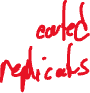 coated
replicats